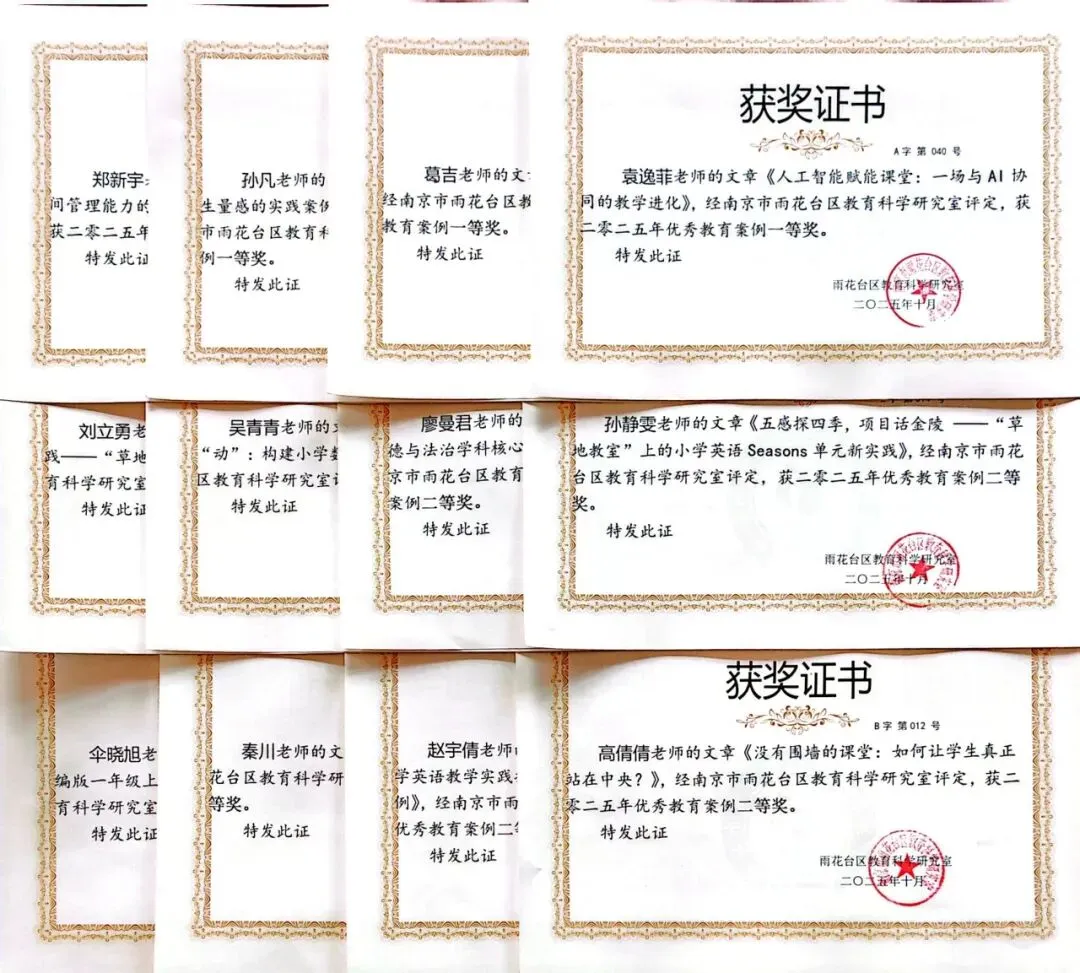 郑新宇老
间管理能力的
获二零二五年
特发此证
孙凡老师的
生量感的实践案例
市雨花台区教育科
例一等奖。
特发此证
葛吉老师的文章
经南京市雨花台区教
教育案例一等奖。
特发此证
获奖证书
A字 第 040 号
袁逸菲老师的文章《人工智能赋能课堂：一场与AI协
同的教学进化》，经南京市雨花台区教育科学研究室评定，获
二零二五年优秀教育案例一等奖。
特发此证
雨花台区教育科学研究室
二〇二五年十月
刘立勇老
践——“草地
育科学研究室
特发此证
吴青青老师的文
“动”：构建小学数
区教育科学研究室评
特发此证
廖曼君老师的
德与法治学科核心
京市雨花台区教育
案例二等奖。
特发此证
孙静雯老师的文章《五感探四季，项目话金陵 ——“草
地教室”上的小学英语 Seasons 单元新实践》，经南京市雨花
台区教育科学研究室评定，获二零二五年优秀教育案例二等
奖。
特发此证
雨花台区教育科学研究室
二〇二五年十月
伞晓旭老
编版一年级上
育科学研究室
特发此证
秦川老师的文
花台区教育科学研
等奖。
特发此证
赵宇倩老师的
学英语教学实践
例》，经南京市雨
优秀教育案例二等
特发此证
获奖证书
B字 第 012 号
高倩倩老师的文章《没有围墙的课堂：如何让学生真正
站在中央？》，经南京市雨花台区教育科学研究室评定，获二
零二五年优秀教育案例二等奖。
特发此证
雨花台区教育科学研究室
二〇二五年十月